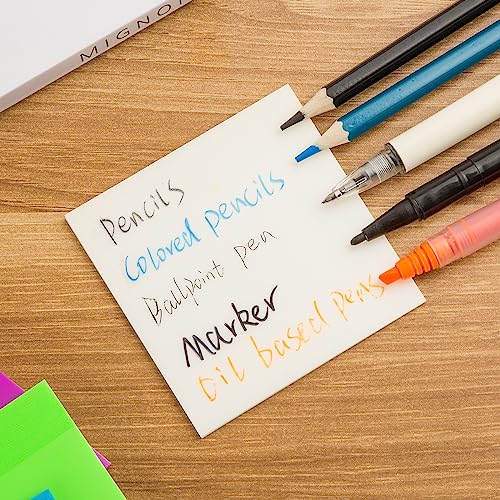 MIGNO
Pencils
Colored pencils
Ballpoint pen
Marker
Oil based pens